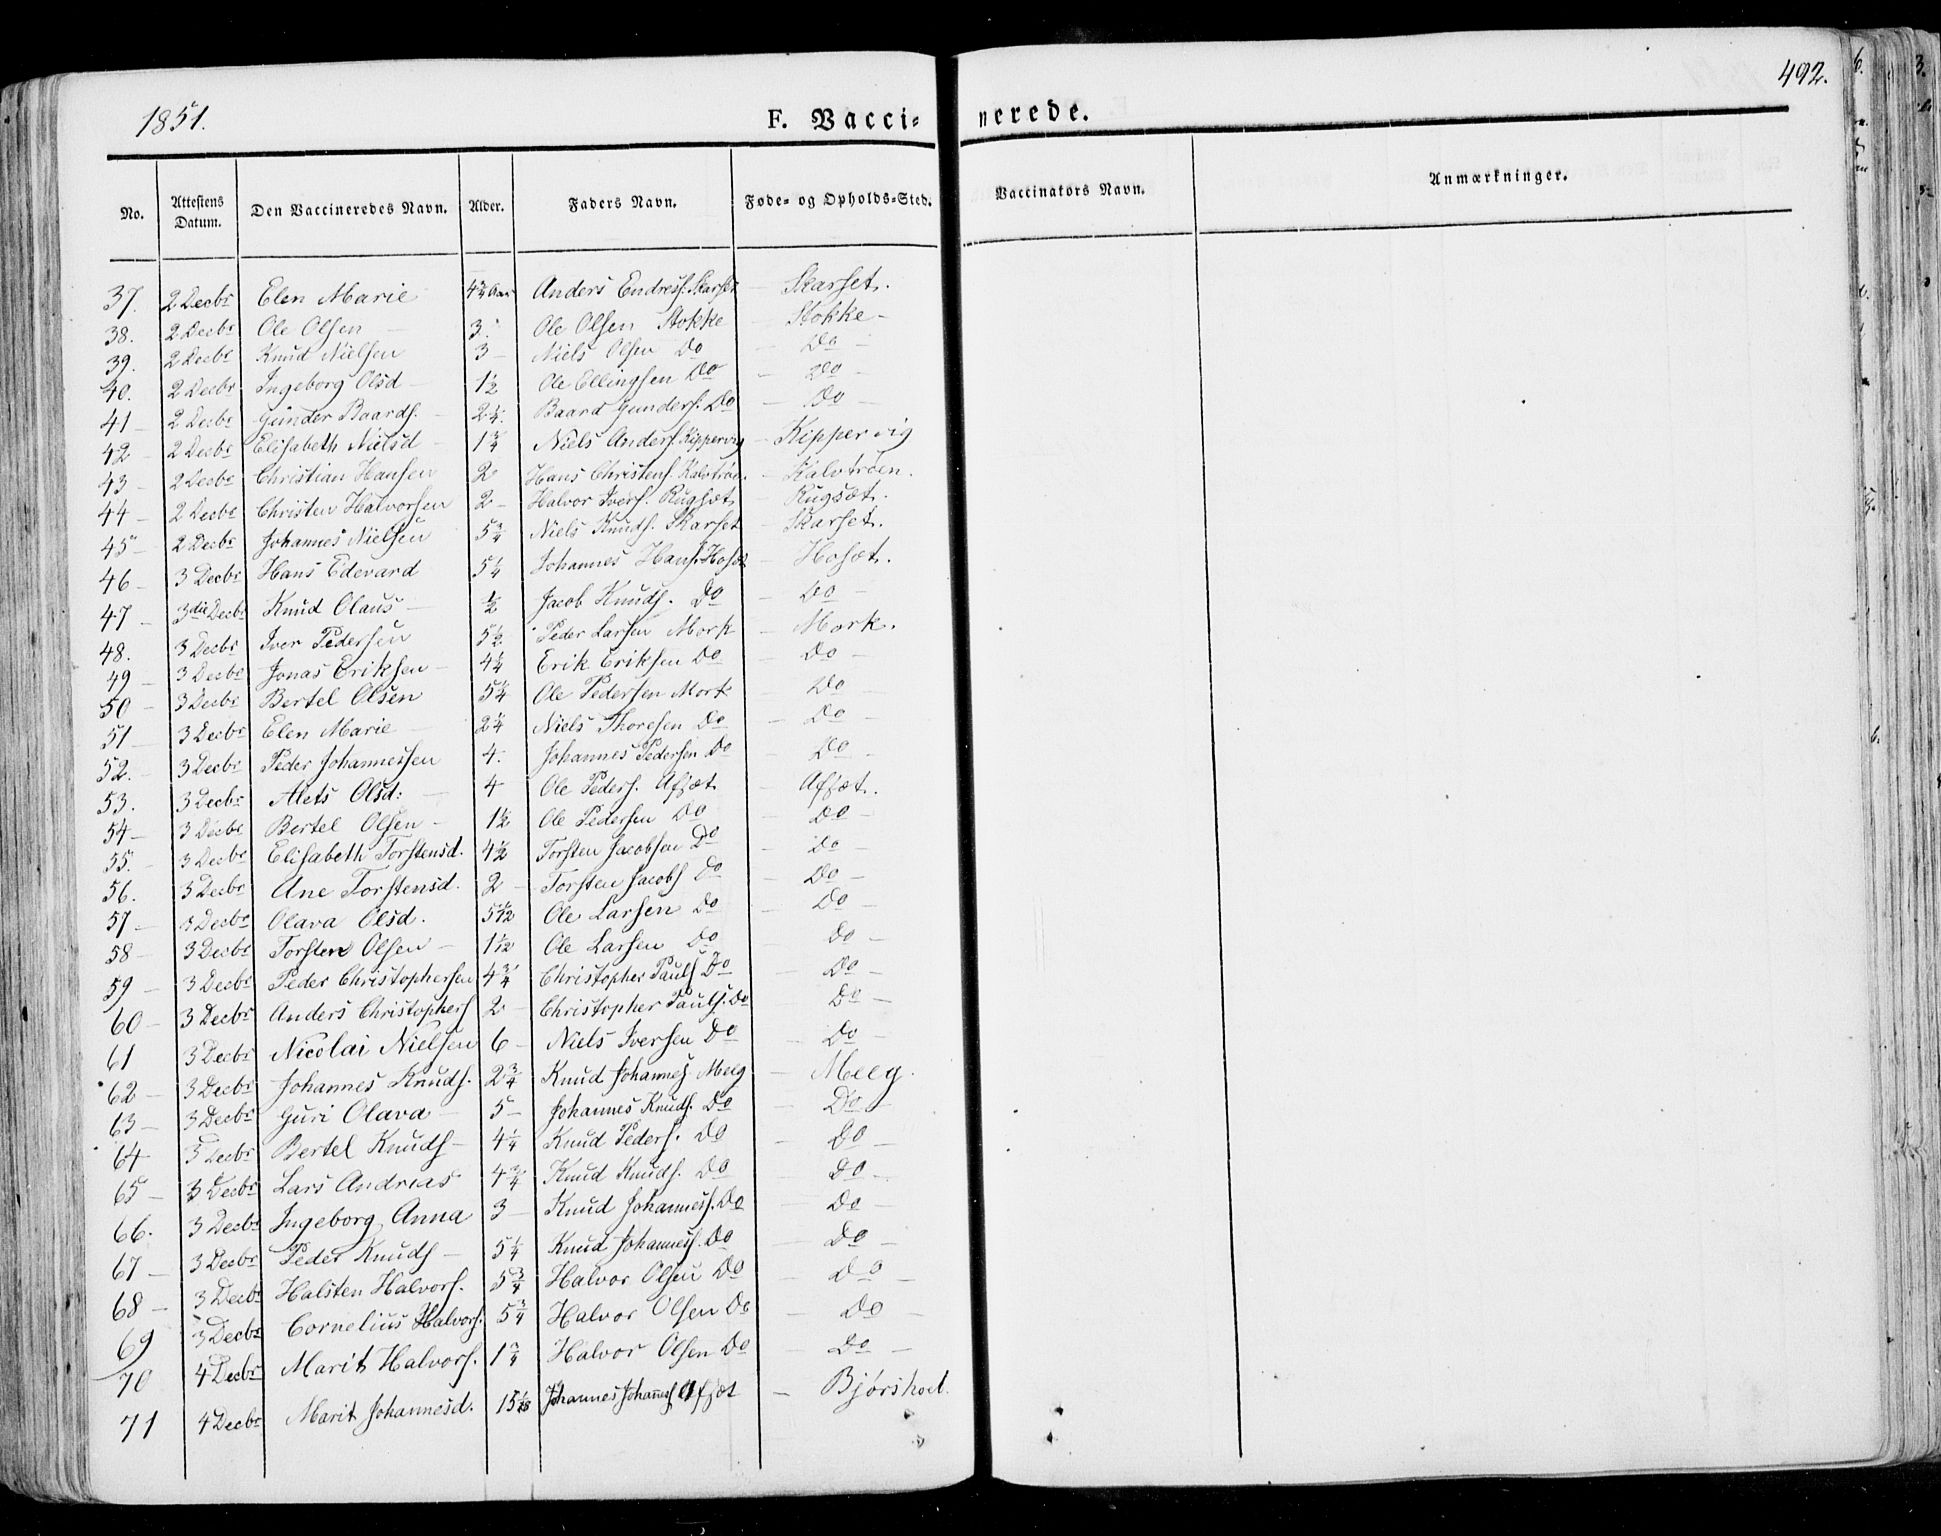 1851.
F. Vacci-
nerede.
492.
No. Attestens Datum. Den Vaccineredes Navn. Alder. Faders Navn. Føde- og Opholds-Sted. Vaccinators Navn. Anmærkninger.
37. 2 Decbr Elen Marie 4 3/4 Aar Anders Endresf. Skarset - Skarset.
38. 2 Decbr Ole Olsen - 3. Ole Olsen Stokke - Stokke -
39. 2 Decbr Knud Nielsen 3 - Niels Olsen Do - Do -
40. 2 Decbr Ingeborg Olsd - 1 1/2 Ole Ellingsen Do - Do -
41 - 2 Decbr Gunder Baards. - 2 1/4. Baard Gunders. Do - Do -
42 - 2 Decbr Elisabeth Nielsd - 1 3/4 Niels Anders. Kippervig - Kippervig
43 - 2 Decbr Christian Hansen 2 Hans Christens. Kalvtrøen. - Kalvtrøen.
44 - 2 Decbr Christen Halvorsen 2 - Halvor Ivers. Rugsæt - Rugsæt.
45 - 2 Decbr Johannes Nielsen 5 3/4 Niels Knuds. Skarset - Skarset.
46 - 3 Decbr Hans Edevard 5 1/4 Johannes Hans. Hosæt - Hosæt.
47 - 3die Decbr Knud Olaus - 1/2 Jacob Knuds. Do - Do -
48. 3 Decbr Iver Pedersen 5 1/2 Peder Larsen Mork - Mork.
49 - 3 Decbr Jonas Eriksen - 4 1/4 Erik Eriksen Do - Do -
50 - 3 Decbr Bertel Olsen 5 1/4 Ole Pedersen Mork - Do -
51 - 3 Decbr Elen Marie - 2 1/4 Niels Thoresen Do - Do -
52. - 3 Decbr Peder Johannessen 4. Johannes Pedersen Do - Do -
53. 3 Decbr Alets Olsd: - 4 Ole Peders. Afsæt - Afsæt.
54 - 3 Decbr Bertel Olsen - 1 1/2 Ole Pedersen Do - Do -
55. - 3 Decbr Elisabeth Torstensd. 4 1/2 Torsten Jacobsen Do - Do -
56. 3 Decbr Ane Torstensd. 2 - Torsten Jacobs Do - Do -
57 - 3 Decbr Olava Olsd. 5 1/12 Ole Larsen Do - Do -
58 - 3 Decbr Torsten Olsen - 1 1/12 Ole Larsen Do Do -
59 - 3 Decbr Peder Christophersen 4 3/4 Christopher Pauls Do - Do -
60 - 3 Decbr Anders Christophers 2 - Christopher Pauls. Do - Do -
61 3 Decbr Nicolai Nielsen 6 - Niels Iversen Do - Do -
62 - 3 Decbr Johannes Knuds. 2 3/4 Knud Johannes. Meeg - Meeg.
63 - 3 Decbr Guri Olava - 5 - Johannes Knuds. Do - Do -
64 3 Decbr Bertel Knuds - 4 1/4 Knud Peders. Do - Do -
65 - 3 Decbr Lars Andreas 4 3/4 Knud Knuds. Do - Do -
66. 3 Decbr Ingeborg Anna 3 - Knud Johanness. Do - Do -
67 - 3 Decbr Peder Knuds - 5 1/4 Knud Johanness. Do - Do -
68 - 3 Decbr Halsten Halvors. 5 3/4 Halvor Olsen Do - Do -
69 3 Decbr Cornelius Halvors. 5 3/4 Halvor Olsen Do - Do -
70 4 Decbr Marit Halvors. 1 3/4 Halvor Olsen Do - Do -
71 4 Decbr Marit Johannesd. 15 Johannes Johannes Afsæt - Bjørshoel.